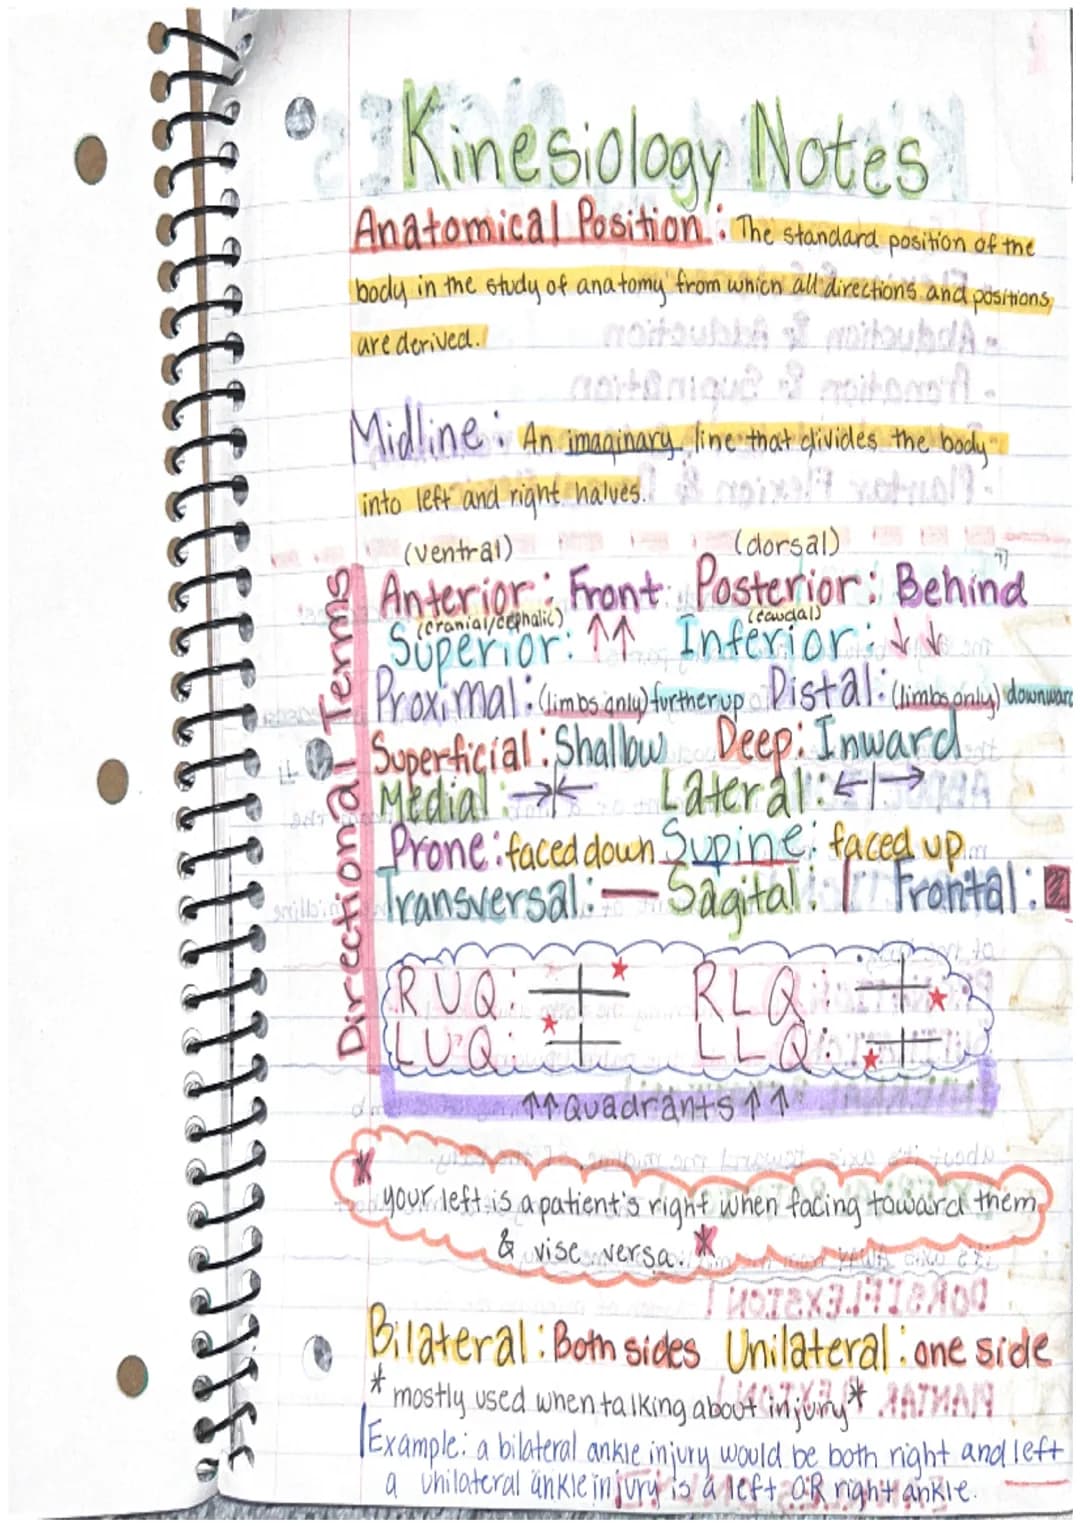 Kinesiology Notes
Anatomical Position: The standard position of the
body in the study of anatomy from which all directions and positions
are derived.
Midline: An imaginary line that divides the body
into left and right halves.
(ventral) (dorsal)
Anterior: Front Posterior: Behind
(cranial/cephalic) (caudal)
Superior: ↑↑ Inferior: ↓↓
Proximal: (limbs only) further up Distal: (limbs only) downward
Superficial: Shallow Deep: Inward
Medial: →|← Lateral: ←|→
Prone: faced down Supine: faced up
Transversal: — Sagital: | Frontal:
Directional Terms
RUQ: RLQ:
LUQ: LLQ:
↑↑Quadrants↑↑
* your left is a patient's right when facing toward them
& vise versa. *
Bilateral: Both sides Unilateral: one side
* mostly used when talking about injury *
Example: a bilateral ankle injury would be both right and left
a unilateral ankle injury is a left OR right ankle.